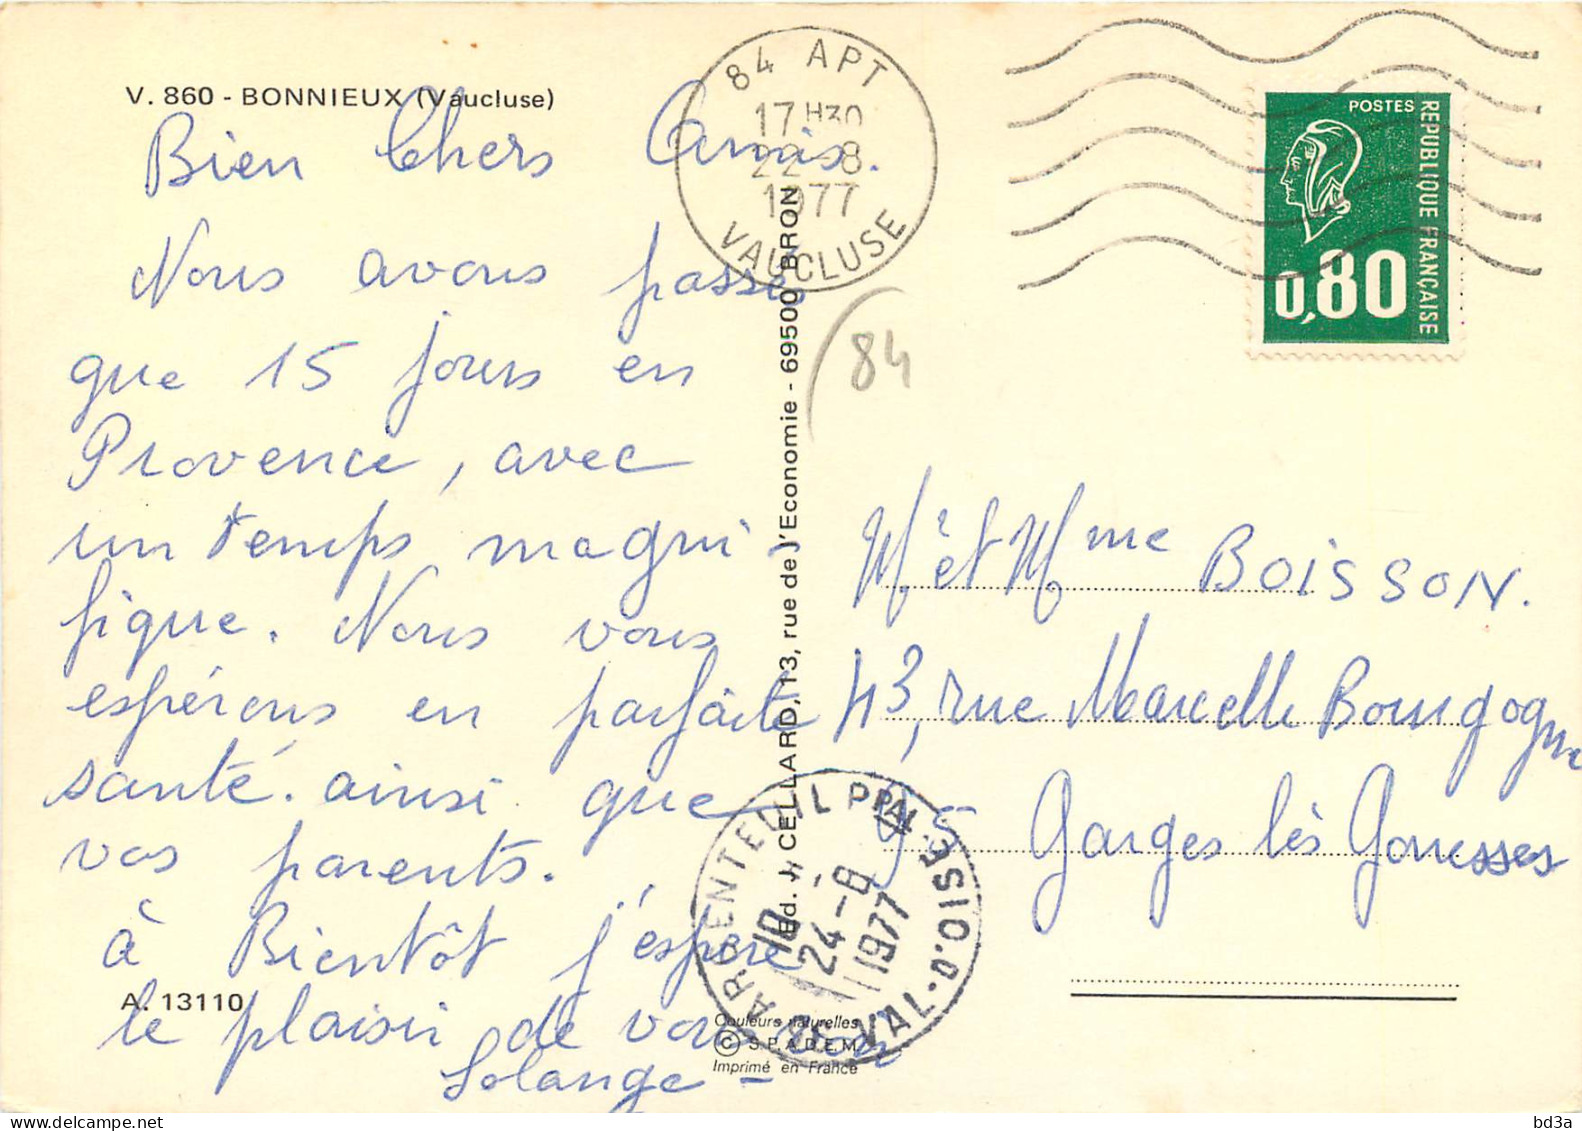 V. 860 - BONNIEUX (Vaucluse)
Bien Chers Amis.
Nous avons passés
que 15 jours en
Provence, avec
un temps magni
fique. Nous vous
espérons en parfaite
santé. ainsi que
vos parents.
à Bientôt j'espère
le plaisir de vous voir
Solange -
A. 13110
84 APT
17 H30
22 - 8
1977
VAUCLUSE
Ed. J. CELLARD, 13, rue de l'Economie - 69500 BRON
(84
POSTES
REPUBLIQUE FRANÇAISE
0,80
Mr et Mme BOISSON.
43, rue Marcelle Bourgogne
95 Garges lès Gonesses
ARGENTEUIL PPAL
VAL-D'OISE
10
24-8
1977
95
Couleurs naturelles
© S.P.A.D.E.M.
Imprimé en France
bd3a